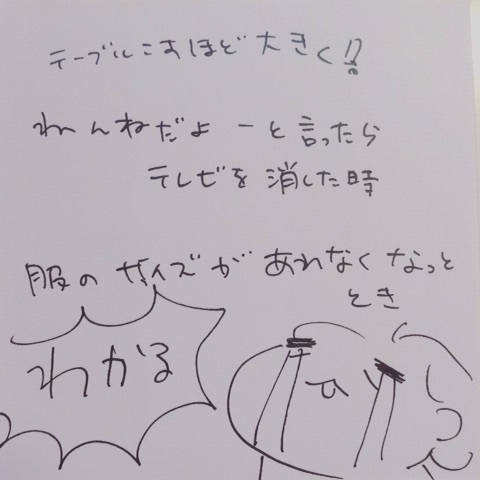 テーブルこすほど大きく!?
わんねだよーと言ったら
テレビを消した時
服のサイズがあれなくなっと
とき
わかる